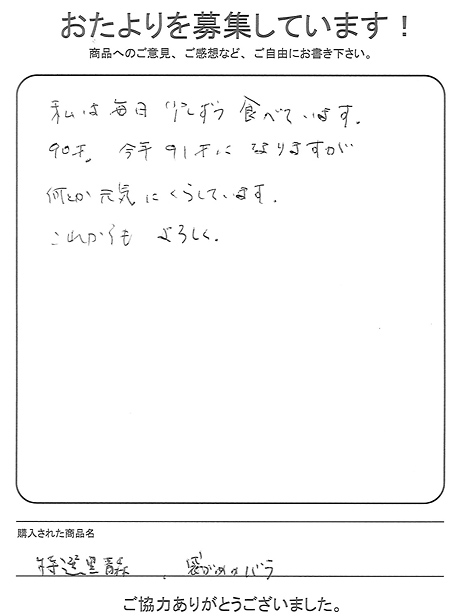 おたよりを募集しています！
商品へのご意見、ご感想など、ご自由にお書き下さい。
私は毎日 少しずつ 食べています.
90才。 今年 91才に なりますが
何とか 元気 にくらしています.
これからも よろしく.
購入された商品名
特選黒青森 . 袋がめのバラ
ご協力ありがとうございました。